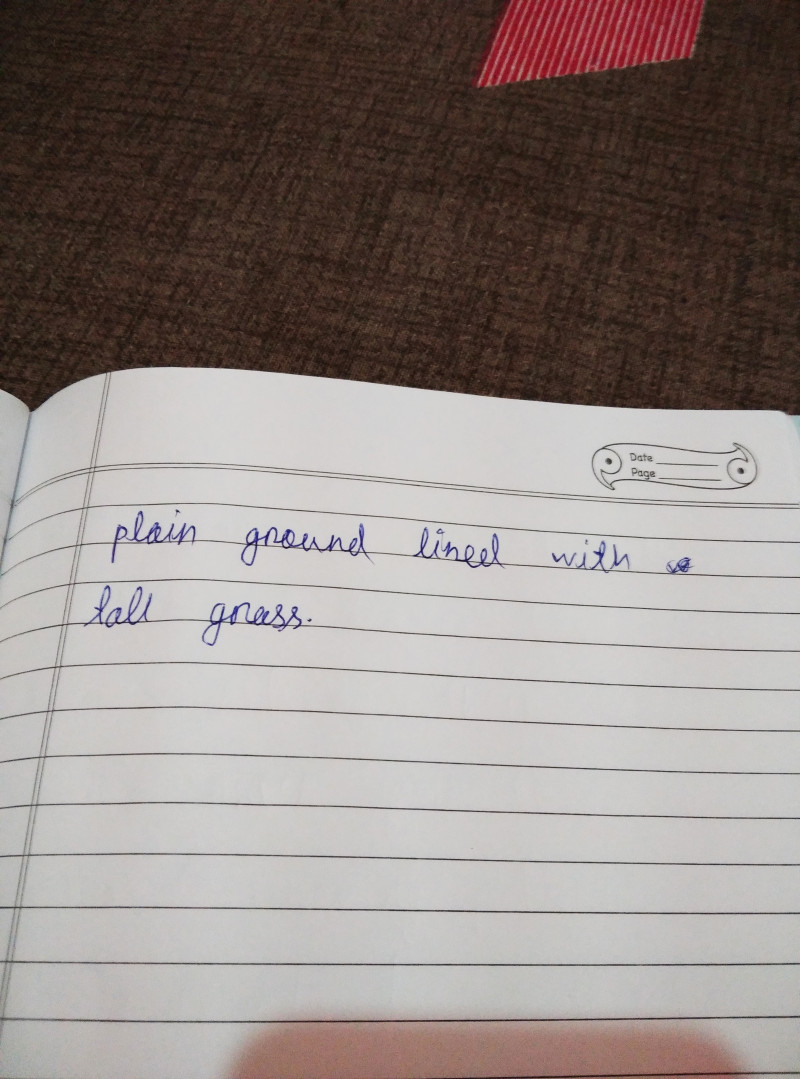 Date
Page
plain ground lined with
tall grass.